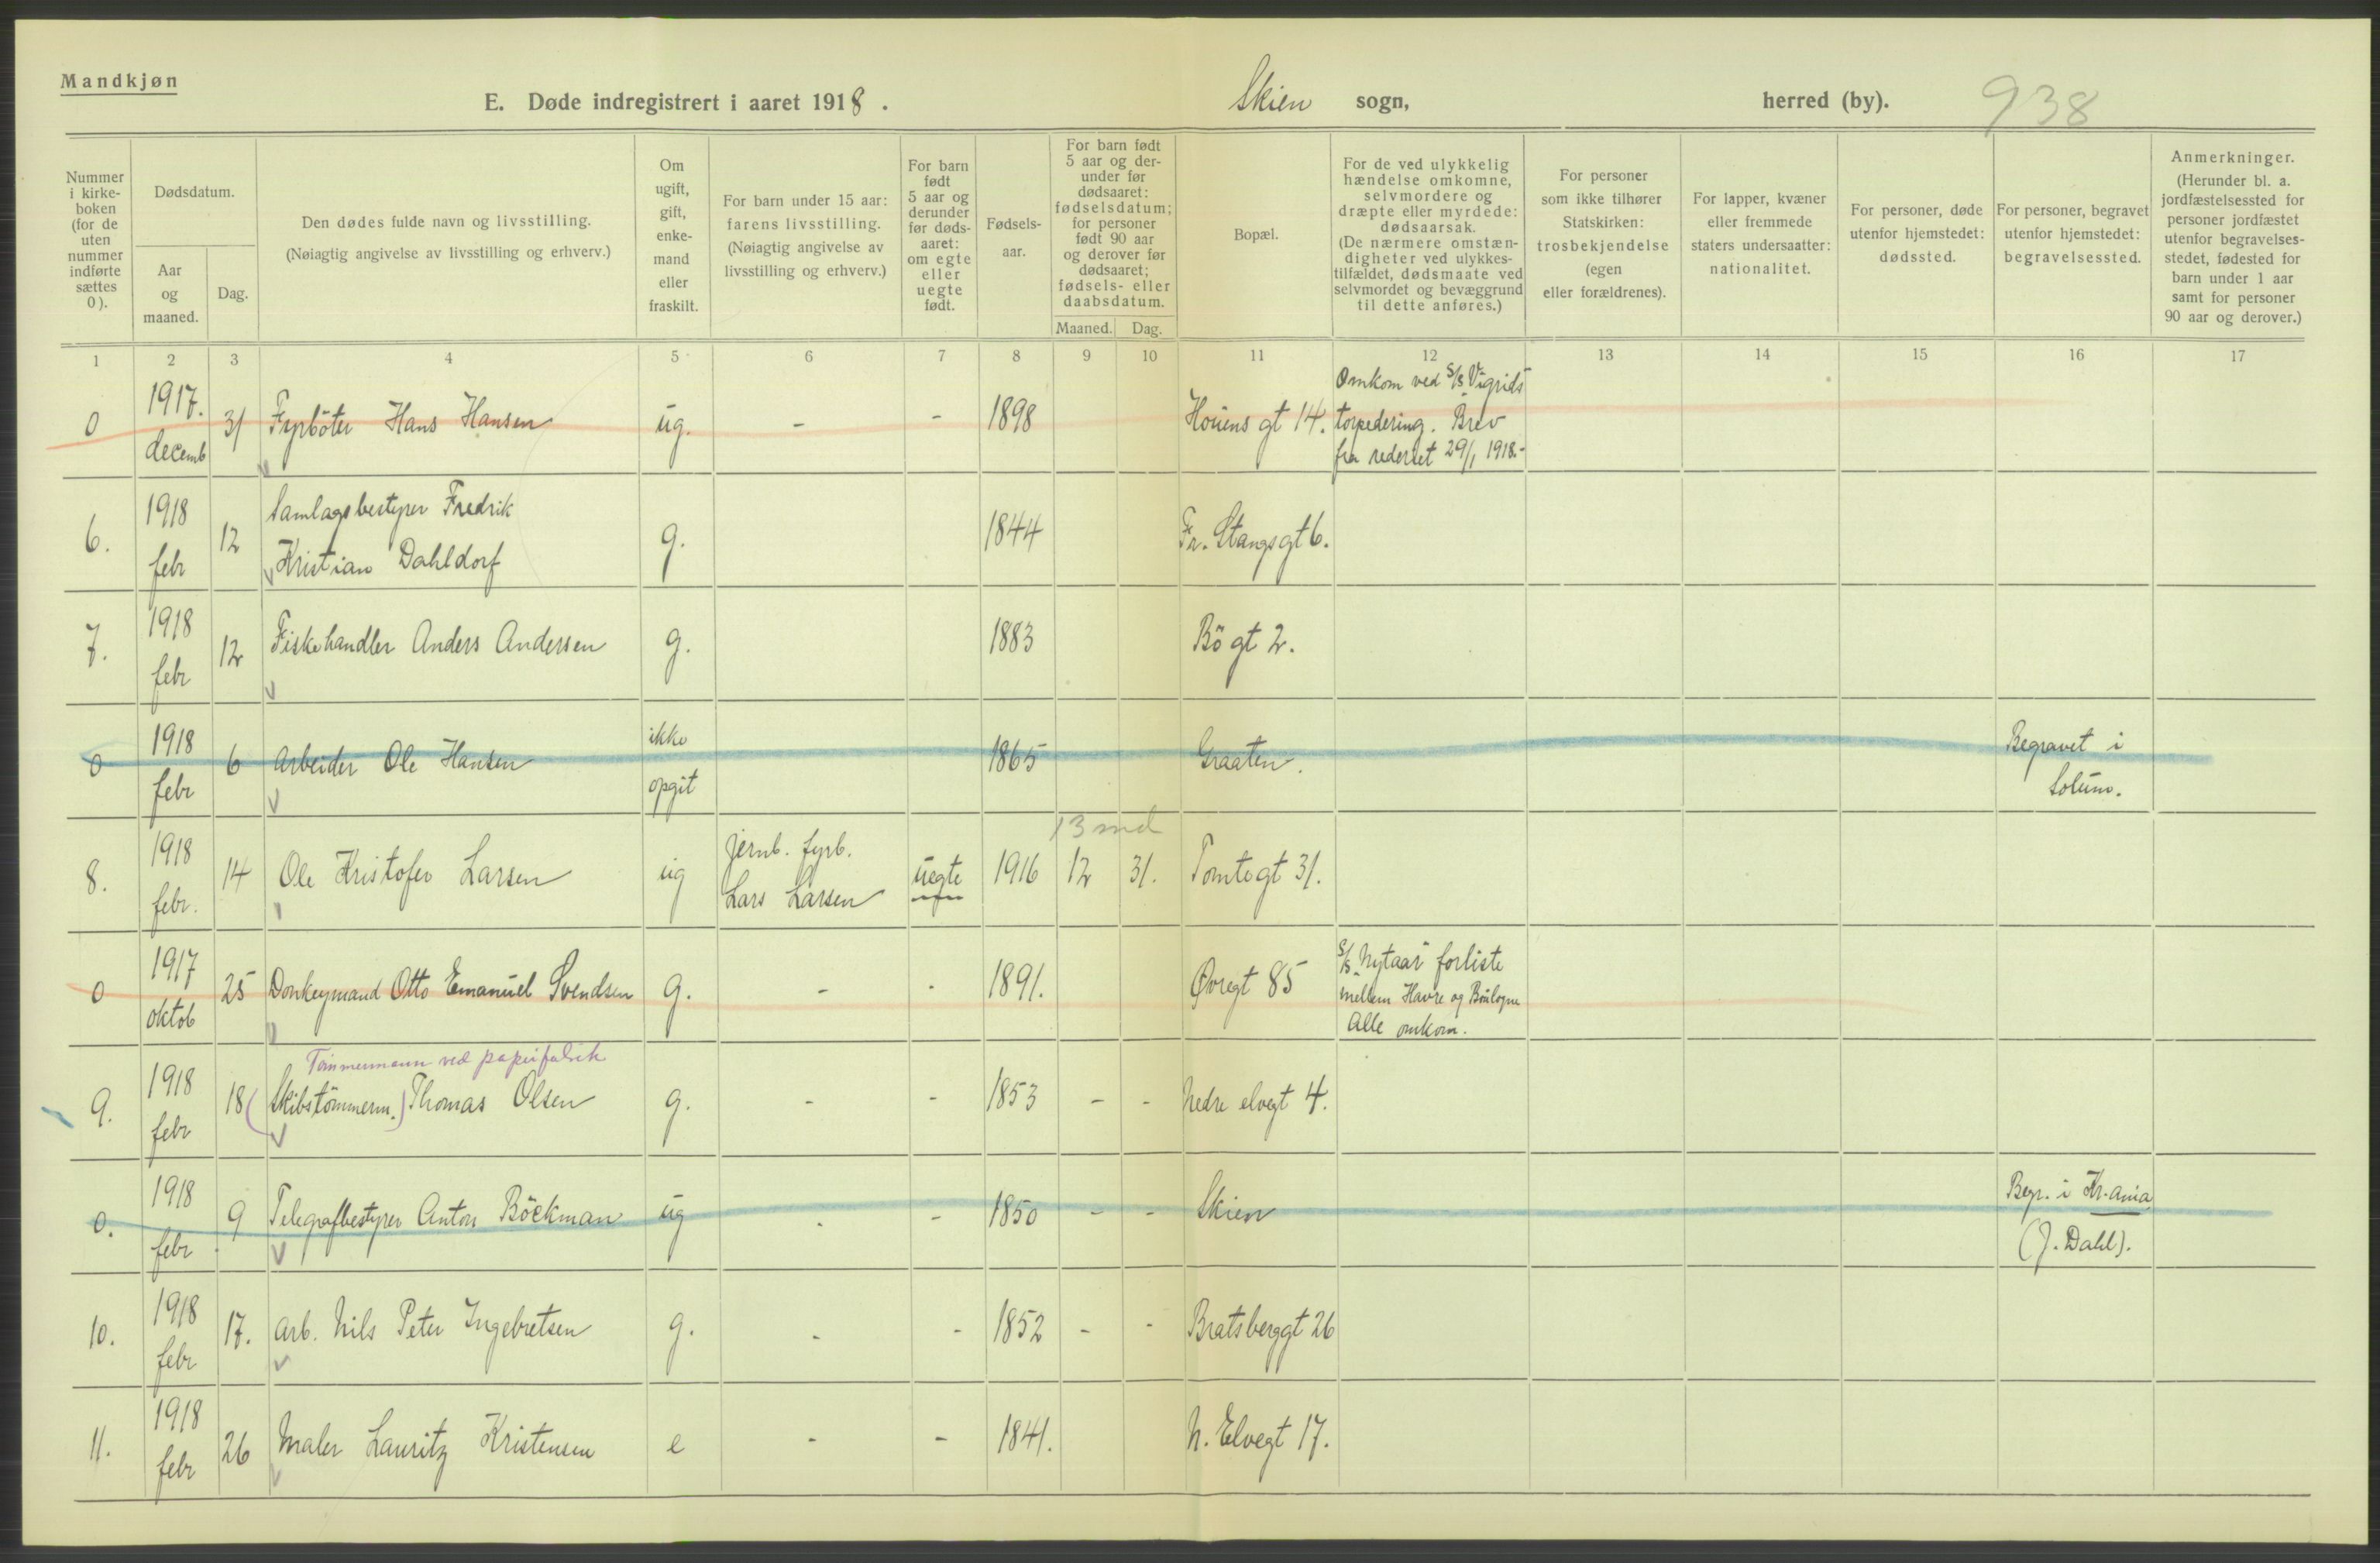 Mandkjøn
E. Døde indregistrert i aaret 1918.
Skien sogn,
herred (by).
938
Nummer i kirke-boken (for de uten nummer indførte sættes 0).
Dødsdatum.
Aar og maaned.
Dag.
Den dødes fulde navn og livsstilling.
(Nøiagtig angivelse av livsstilling og erhverv.)
Om ugift, gift, enke-mand eller fraskilt.
For barn under 15 aar: farens livsstilling.
(Nøiagtig angivelse av livsstilling og erhverv.)
For barn født 5 aar og derunder før døds-aaret: om egte eller uegte født.
Fødsels-aar.
For barn født 5 aar og der-under før dødsaaret: fødselsdatum; for personer født 90 aar og derover før dødsaaret; fødsels- eller daabsdatum.
Maaned.
Dag.
Bopæl.
For de ved ulykkelig hændelse omkomne, selvmordere og dræpte eller myrdede: dødsaarsak.
(De nærmere omstæn-digheter ved ulykkes-tilfældet, dødsmaate ved selvmordet og bevæggrund til dette anføres.)
For personer som ikke tilhører Statskirken: trosbekjendelse (egen eller forældrenes).
For lapper, kvæner eller fremmede staters undersaatter: nationalitet.
For personer, døde utenfor hjemstedet: dødssted.
For personer, begravet utenfor hjemstedet: begravelsessted.
Anmerkninger.
(Herunder bl. a. jordfæstelsessted for personer jordfæstet utenfor begravelses-stedet, fødested for barn under 1 aar samt for personer 90 aar og derover.)
1 2 3 4 5 6 7 8 9 10 11 12 13 14 15 16 17
0 1917. decemb 31 Fyrböter Hans Hansen ug. - - 1898 Houens gt 14. Omkom ved S/S Vigrids torpedering. Brev fra rederiet 29/1 1918.-
6. 1918 febr 12 Samlagsbestyrer Fredrik Kristian Dahldorf g. 1844 Fr. Stangsgt 6.
7. 1918 febr 12 Fiskehandler Anders Andersen g. 1883 Bö gt 2.
0 1918 febr 6 Arbeider Ole Hansen ikke opgit 1865 Graaten. Begravet i Solum.
13 md
8. 1918 febr. 14 Ole Kristofer Larsen ug jernb. fyrb. Lars Larsen uegte 1916 12 31. Tomtegt 31.
0 1917 oktob 25 Donkeymand Otto Emanuel Svendsen g. - - 1891. Øvregt 85 S/S "Nytaar" forliste mellem Havre og Boulogne Alle omkom.
Tømmermann ved papirfabrik
9. 1918 febr 18 (Skibstömmerm.) Thomas Olsen g. - - 1853 - - Nedre elvegt 4.
0. 1918 febr 9 Telegrafbestyrer Anton Böckman ug - - 1850 - - Skien Begr. i Kr.ania (J. Dahl).
10. 1918 febr 17. Arb. Nils Peter Ingebretsen g. - - 1852 - - Bratsberggt 26
11. 1918 febr 26 Maler Lauritz Kristensen e - - 1841. N. Elvegt 17.